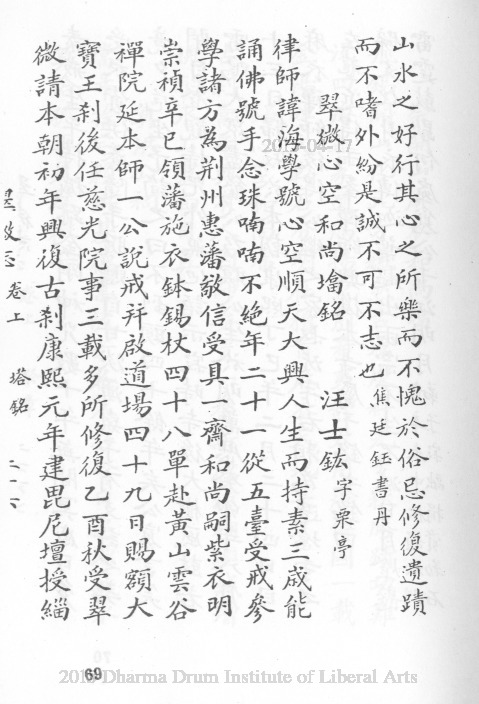 山水之好行其心之所樂而不愧於俗忌修復遺蹟
而不嗜外紛是誠不可不志也 焦廷鈺書丹
翠微心空和尚塔銘 汪士鈜 字栗亭
律師諱海學號心空順天大興人生而持素三歲能
誦佛號手念珠喃喃不絕年二十一從五臺受戒參
學諸方為荆州惠藩敬信受具一齋和尚嗣紫衣明
崇禎辛巳領藩施衣鉢錫杖四十八單赴黃山雲谷
禪院延本師一公說戒幷啟道場四十九日賜額大
寶王刹後任慈光院事三載多所修復乙酉秋受翠
微請本朝初年興復古刹康熙元年建毘尼壇授緇
翠微志 卷上 塔銘
69
2015-04-17
Dharma Drum Institute of Liberal Arts